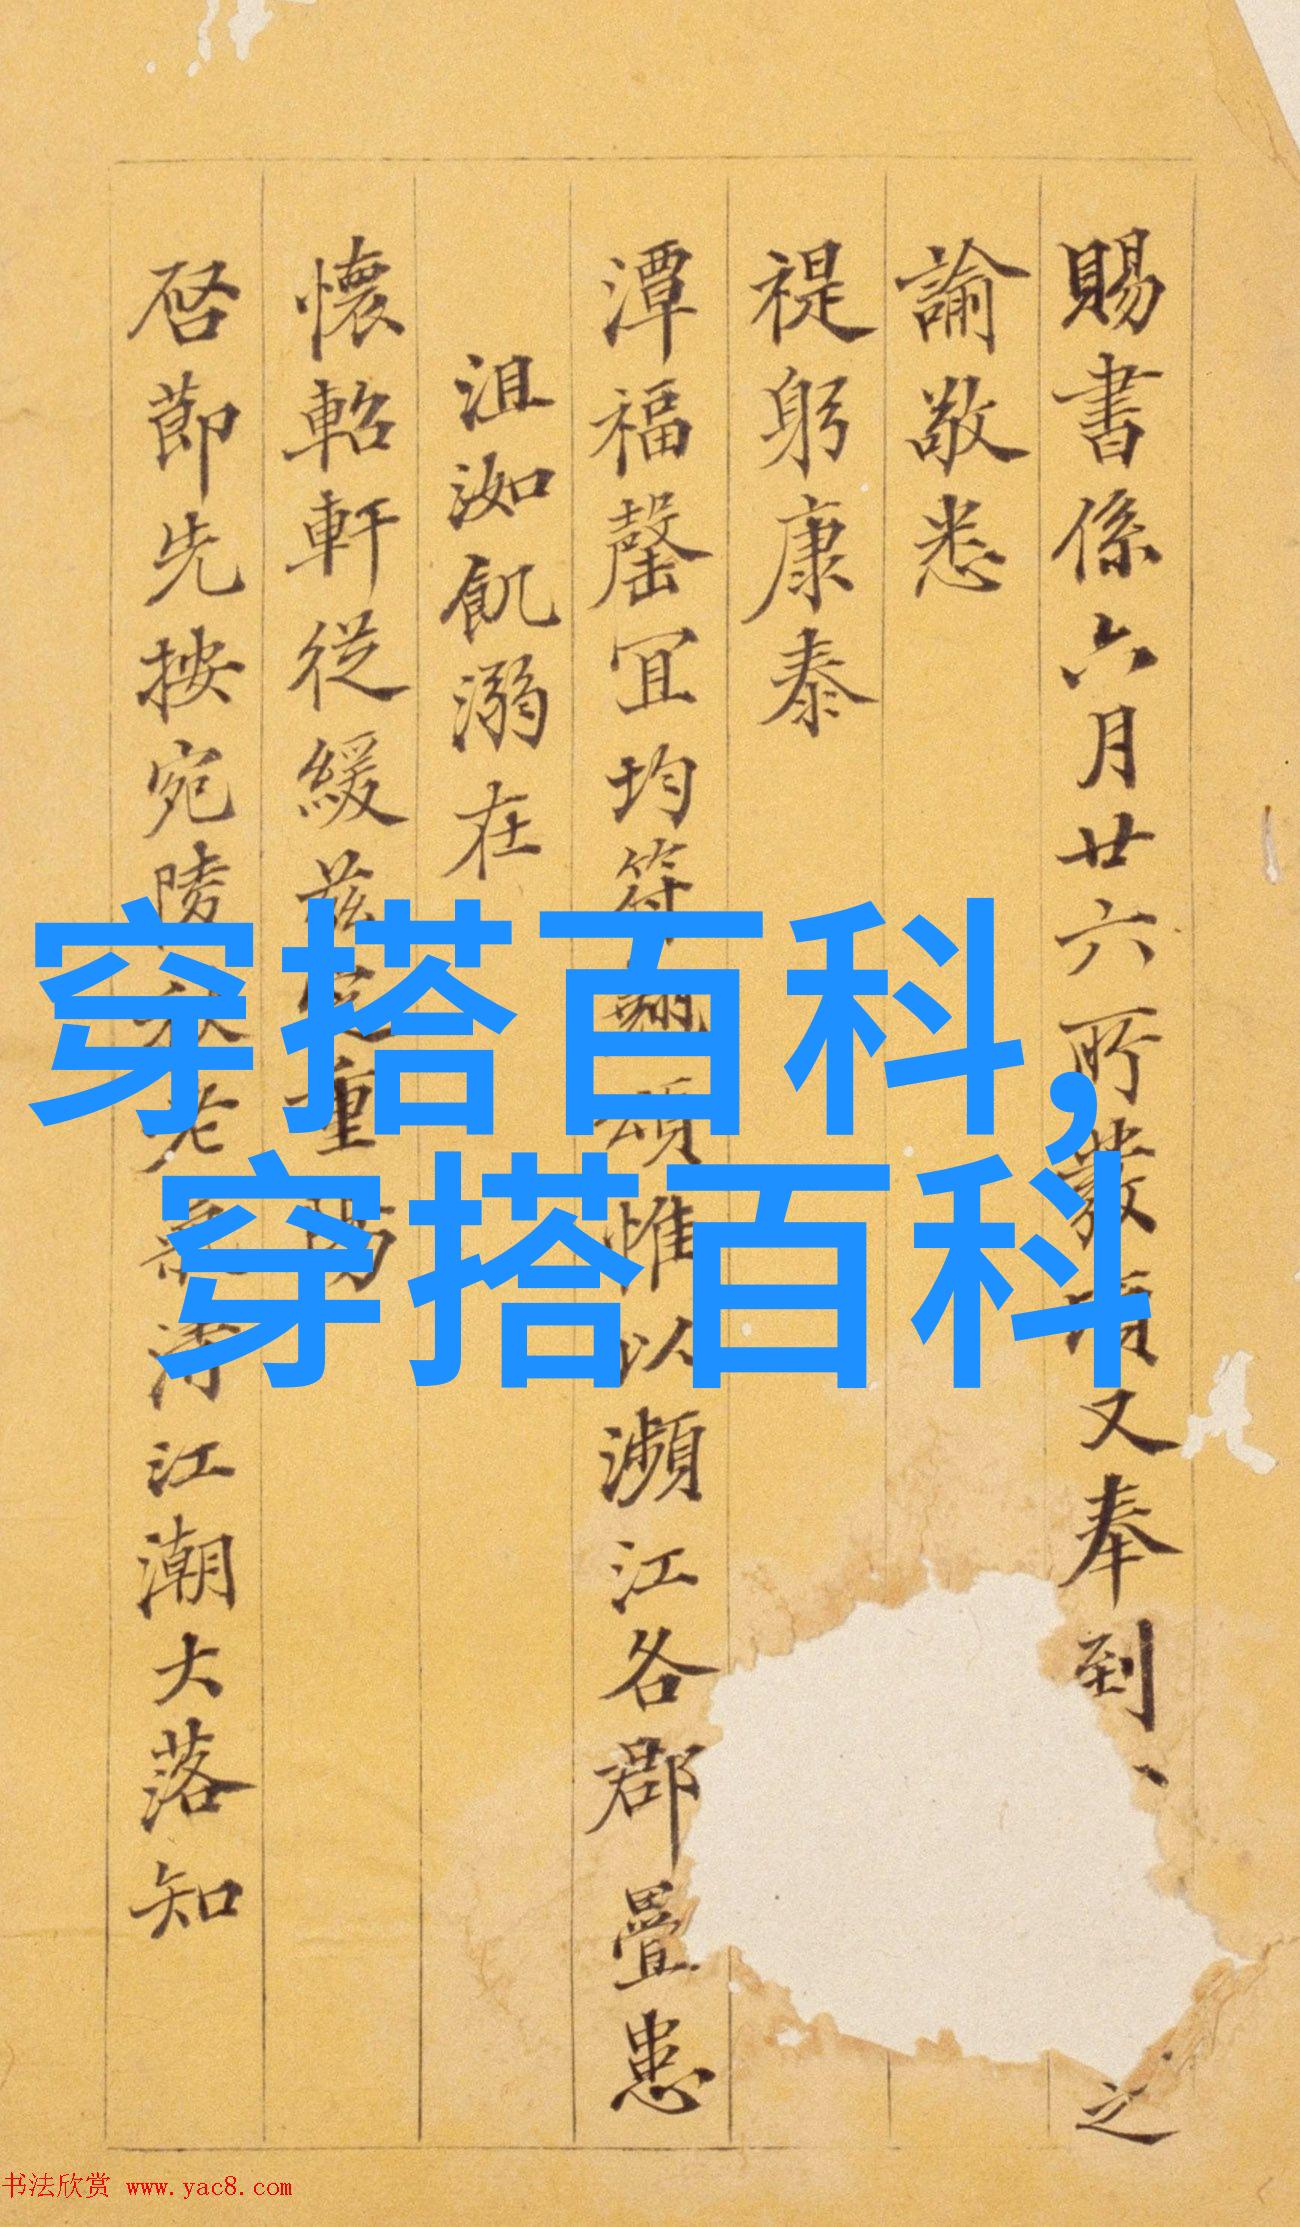 賜書係六月廿六所發有又奉到、之
諭敬悉
禔躬康泰
潭福罄宜均符頌惟以瀕江各郡疊患
沮洳飢溺在
懷軺軒從緩茲重
啓節先按宛陵秋老氣清江潮大落知
穿搭百科,
穿搭百科
书法欣赏 www.yac8.com